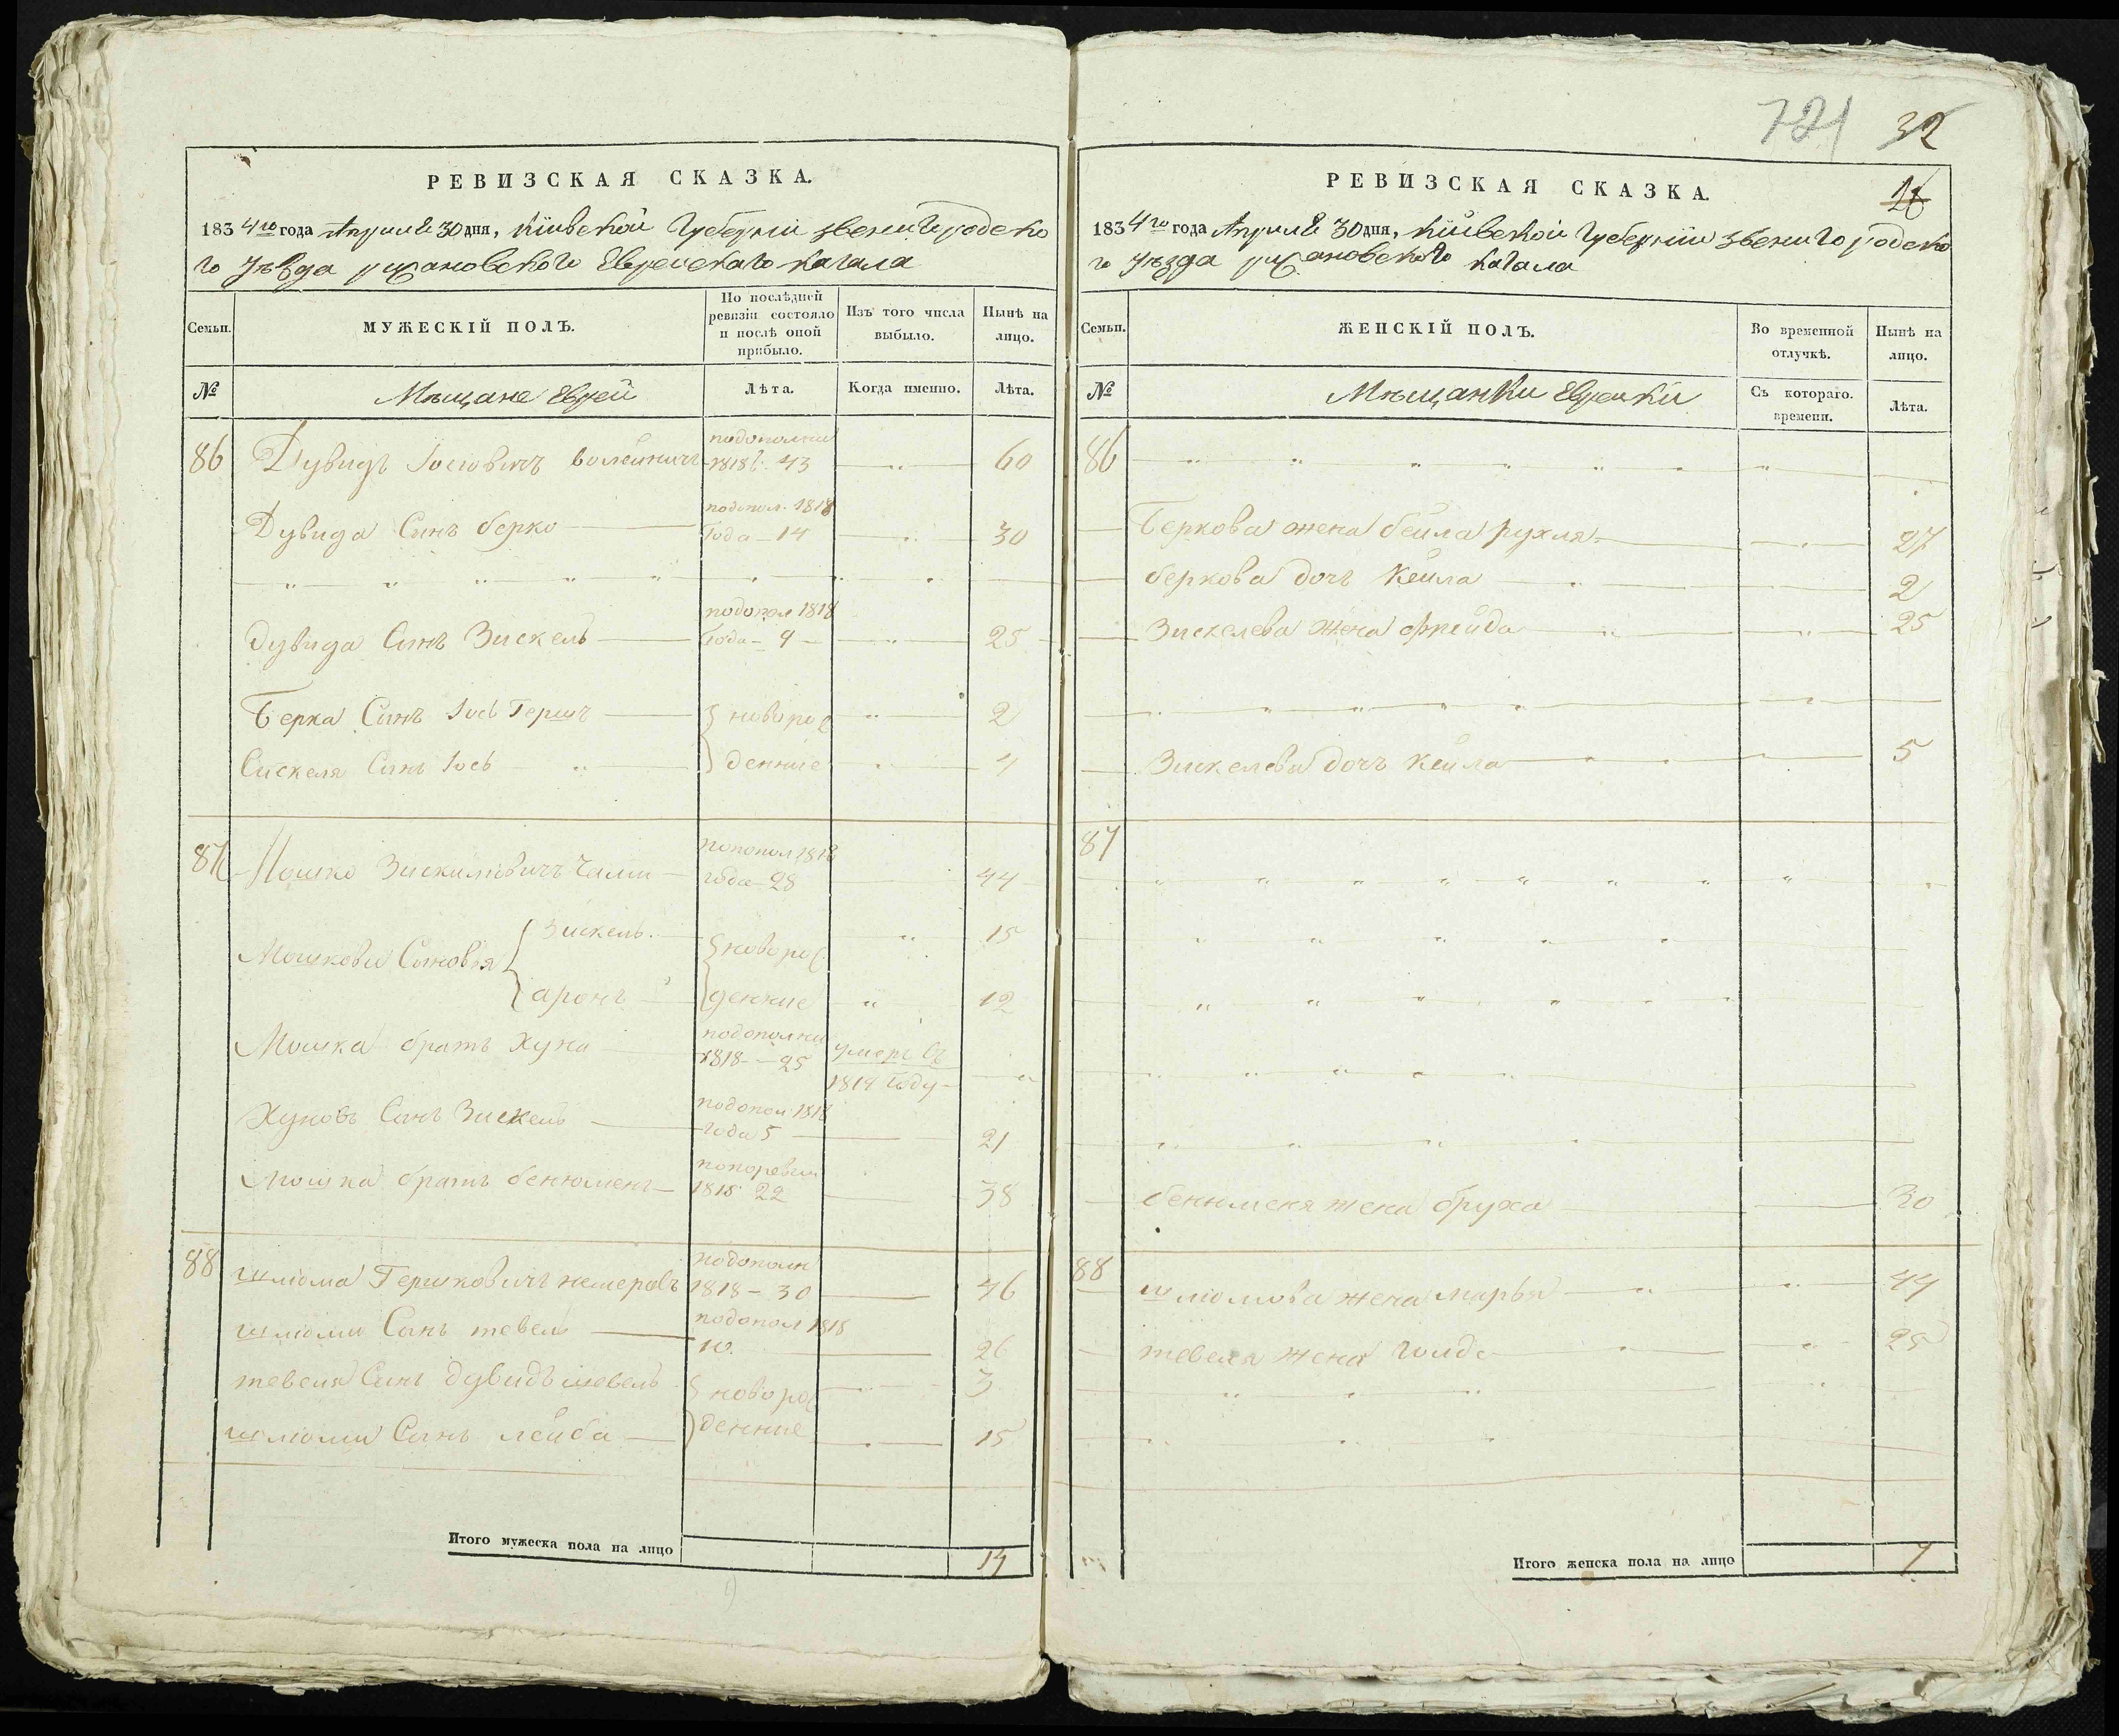 РЕВИЗСКАЯ СКАЗКА.
1834го года Апреля 30 дня, Кіивской Губерніи звенигородско
го уѣзда рижановского Еврейскаго кагала
Семьи.
МУЖЕСКІЙ ПОЛЪ.
По послѣдней ревизіи состояло и послѣ оной прибыло.
Изъ того числа выбыло.
Нынѣ на лицо.
№
Мѣщане Евреи
Лѣта.
Когда именно.
Лѣта.
86 Дувидъ Іосіовичъ подополнки 1818г. 43 60
Дувида Синъ берко подопол. 1818 Года 14 30
Дувида Синъ Зискель подопол 1818 Года 9 25
Берка Синъ Іось Гершъ новорож 2
Сискеля Синъ Іось денние 4
87 Мошко Зискиліовичъ подопол 1818 года 28 44
Мошкови Синовья Зискель новорож 15
аронъ денние 12
Мошка братъ Хуна подополнки 1818 25 умеръ въ 1819 Году
Хуновъ Синъ Зискель подопол 1818 года 5 21
Мошка братъ бенюменъ 1818 22 38
88 шліома Гершковичъ немеровъ подополн 1818 - 30 46
шліоми Синъ тевель подопол 1818 10. 26
тевеля Синъ дувидъ новорож 3
шліоми Синъ лейба денние 15
Итого мужеска пола на лицо 14
721 32
РЕВИЗСКАЯ СКАЗКА.
1834го года Апреля 30 дня, Кіивской Губерніи звенигородско
го уѣзда рижановского кагала
Семьи.
ЖЕНСКІЙ ПОЛЪ.
Во временной отлучкѣ.
Нынѣ на лицо.
№
Мѣщанки Еврейки
Съ котораго. времени.
Лѣта.
86
Беркова жена бейла рухля 27
беркова дочъ Кейла 2
Зискелева жена фрейда 25
Зискелева дочъ Кейла 5
87
бенюменя жена бруха 30
88 шліомова жена марья 44
тевеля жена голда 25
Итого женска пола на лицо 7